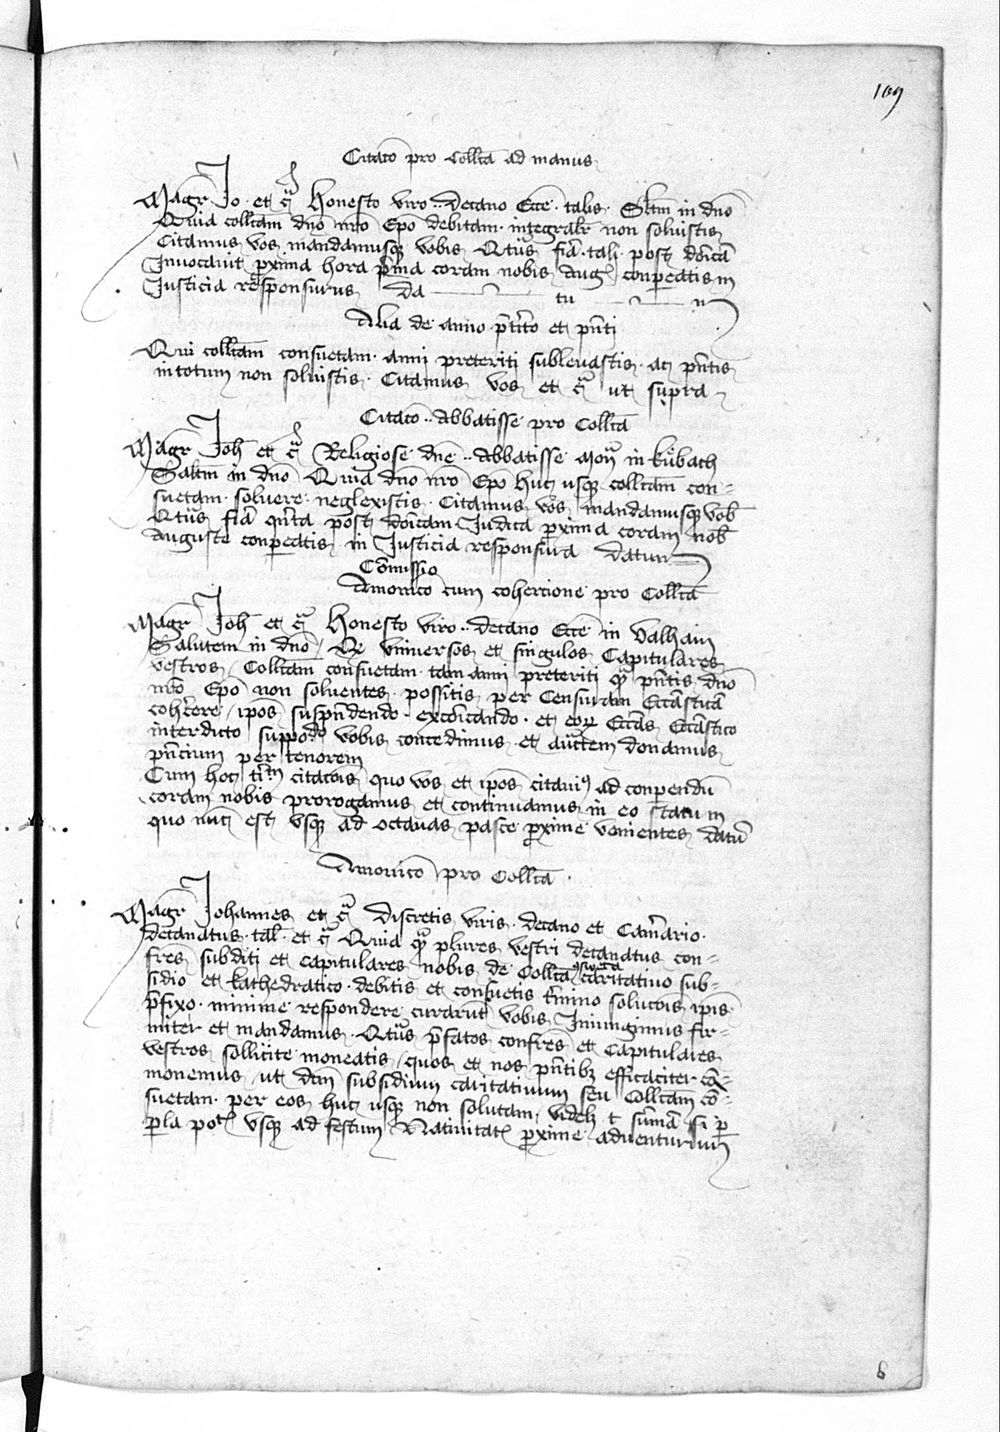 109
Citacō pro Collcā ad manus
Magr Jo. et c̄ Honesto viro .. Decano Eccē. talis. Saltm in dnō
Quia collcam dnō nrō Epō debitam. integralr non soluistis
Citamus vos mandamusq vobis Qtus fiā. tali. post dōicā
Inuocauit pxima hora pima coram nobis Aug conpeatis in
Justicia responsurus da tu m
Alia de anno ptito et pnti
Qui collcam consuetam. anni preteriti subleuastis. ac pntis
in totum non soluistis. Citamus vos et c̄ ut supra
Citacō .. Abbatisse pro Collcā
Magr Joh et c̄ Religiose dnē .. Abbatisse Mon in kübach
Saltm in dnō Quia dnō nrō Epō huc usq collcam con-
suetam. soluere. neglexistis. Citamus vos mandamusq vob
Qtus fiā qnta post dōicam Judica pxima coram nob
Auguste conpeatis in Justicia responsura datum
Cōmissio
Amonicō cum cohercione pro Collcā
Magr Joh et c̄ Honesto viro .. decano Eccē in Valhain
Salutem in dnō / Vt vniuersos et singulos Capitulares
vestros / Collcam consuetam. tam anni preteriti q pntis dnō
nrō Epō non soluentes. possitis per Censuram Eccāsticā
cohercere / ipos suspndendo. excōicando. et eor Eccās Eccāstico
interdicto suppodo vobis concedimus. et auctem donamus
pncium per tenorem
Cum hoc tim citacōis quo vos et ipos citauim ad conpendū
coram nobis prorogamus et continuamus in eo statu in
quo nūc est vsq ad octauas pasce pxime venientes datū
Amonicō pro Collcā.
Magr Johannes et c̄ discretis viris. decano et Camrario.
decanatus. tal. et c̄ Quia q plures vestri decanatus con-
fres subditi et capitulares nobis de Collcā caritatiuo sub-
sidio et kathedratico. debitis et consuetis tmino solucōis ipis
pfixo. minime respondere curarūt vobis Iniungimus fir-
miter et mandamus. Qtus pfatos confres et Capitulares
vestros sollicite moneatis / quos et nos pntibz efficaciter cō-
monemus / ut dcm subsidium caritatiuum seu Collcam cō-
suetam. per eos huc usq non solutam, videlz t sumā si p
pla pot vsq ad festum Natiuitat pxime aduenturum
6